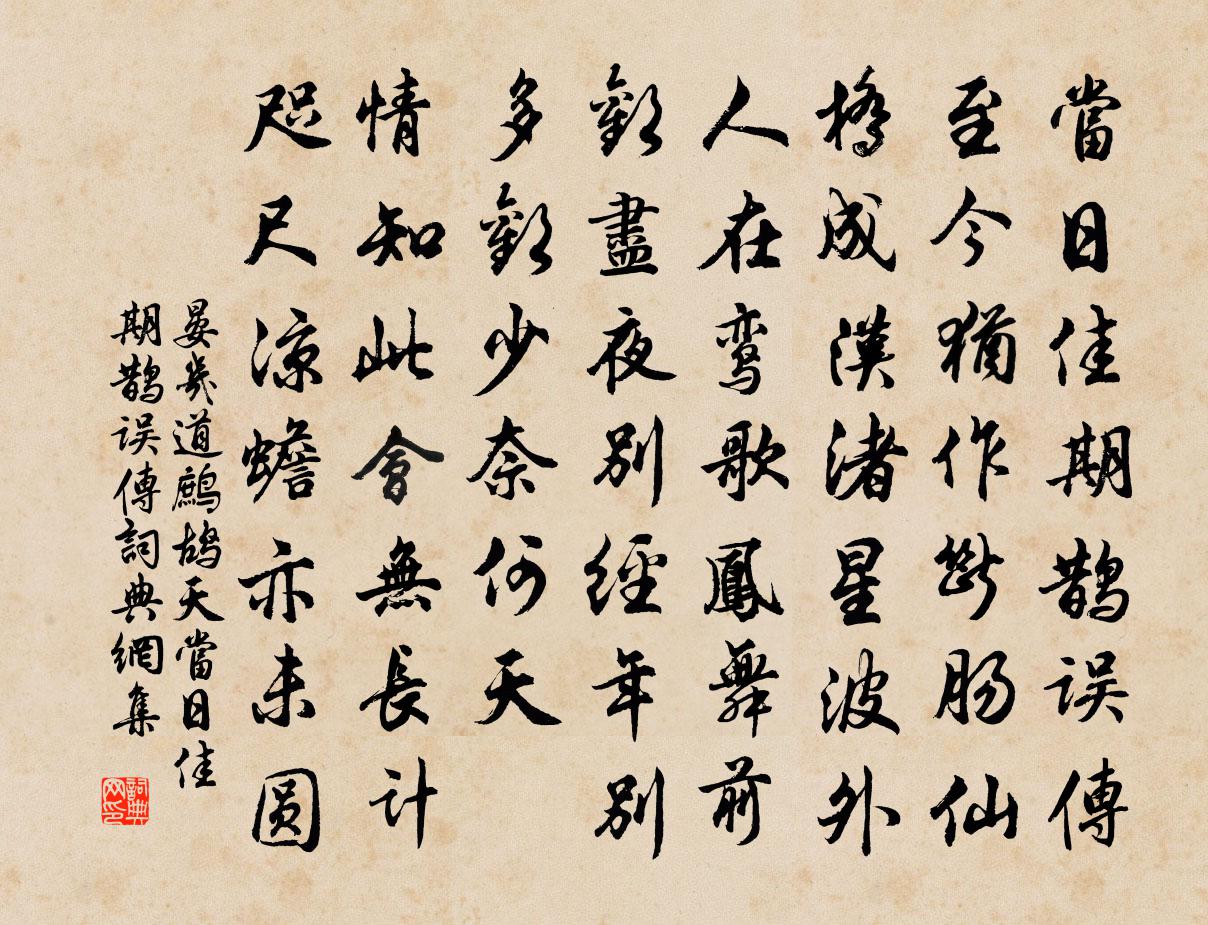 當日佳期鹊误傳
至今猶作斷肠仙
橋成漢渚星波外
人在鸾歌鳳舞前
歡盡夜别經年别
多歡少奈何天
情知此會無長计
咫尺凉蟾亦未圆
晏幾道鹧鸪天當日佳
期鹊误傳詞典網集
詞典
网印